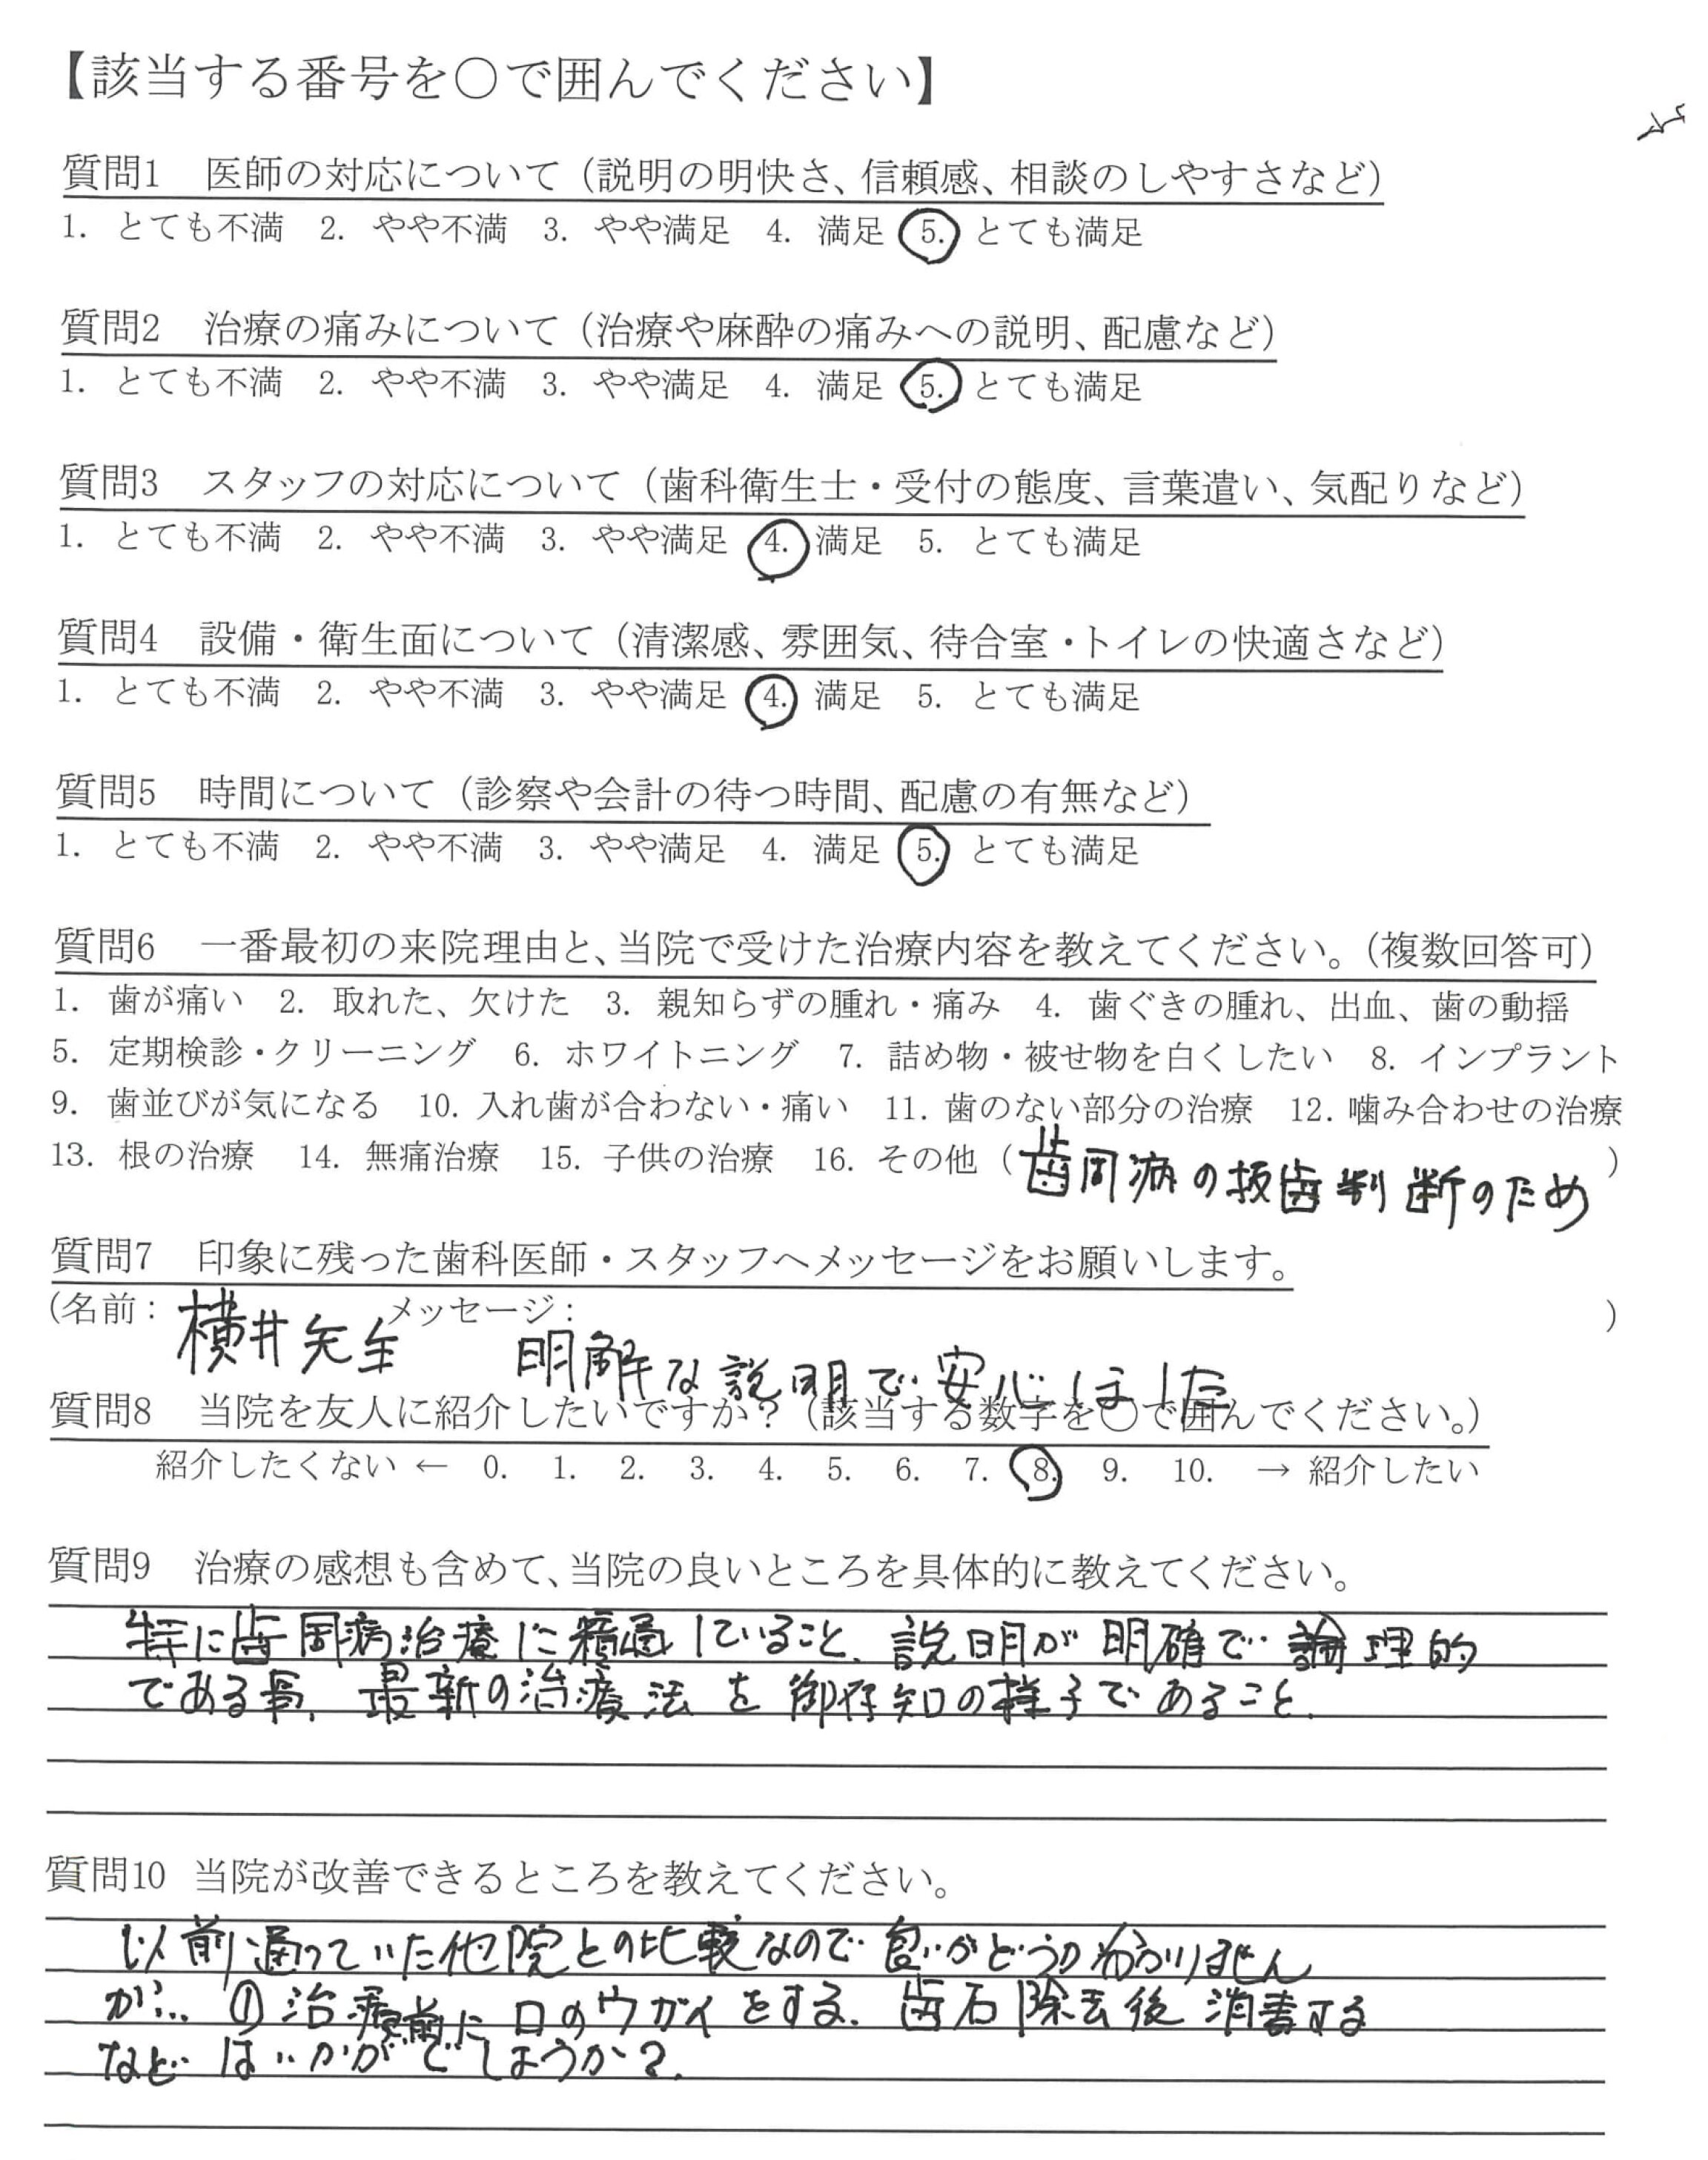 【該当する番号を○で囲んでください】
質問1　医師の対応について（説明の明快さ、信頼感、相談のしやすさなど）
1. とても不満　2. やや不満　3. やや満足　4. 満足　5. とても満足
質問2　治療の痛みについて（治療や麻酔の痛みへの説明、配慮など）
1. とても不満　2. やや不満　3. やや満足　4. 満足　5. とても満足
質問3　スタッフの対応について（歯科衛生士・受付の態度、言葉遣い、気配りなど）
1. とても不満　2. やや不満　3. やや満足　4. 満足　5. とても満足
質問4　設備・衛生面について（清潔感、雰囲気、待合室・トイレの快適さなど）
1. とても不満　2. やや不満　3. やや満足　4. 満足　5. とても満足
質問5　時間について（診察や会計の待つ時間、配慮の有無など）
1. とても不満　2. やや不満　3. やや満足　4. 満足　5. とても満足
質問6　一番最初の来院理由と、当院で受けた治療内容を教えてください。（複数回答可）
1. 歯が痛い　2. 取れた、欠けた　3. 親知らずの腫れ・痛み　4. 歯ぐきの腫れ、出血、歯の動揺
5. 定期検診・クリーニング　6. ホワイトニング　7. 詰め物・被せ物を白くしたい　8. インプラント
9. 歯並びが気になる　10. 入れ歯が合わない・痛い　11. 歯のない部分の治療　12. 噛み合わせの治療
13. 根の治療　14. 無痛治療　15. 子供の治療　16. その他（歯周病の抜歯判断のため）
質問7　印象に残った歯科医師・スタッフへメッセージをお願いします。
(名前：横井先生　メッセージ：明解な説明で安心しました)
質問8　当院を友人に紹介したいですか？（該当する数字を○で囲んでください。）
紹介したくない ← 0. 1. 2. 3. 4. 5. 6. 7. 8. 9. 10. → 紹介したい
質問9　治療の感想も含めて、当院の良いところを具体的に教えてください。
特に歯周病治療に精通していること、説明が明確で論理的
である事、最新の治療法を御存知の様子であること.
質問10 当院が改善できるところを教えてください。
以前通っていた他院との比較なので良いかどうか分かりません
が… ①治療前に口のウガイをする、歯石除去後消毒する
などはいかがでしょうか？.